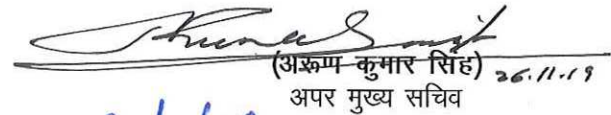 (अरूण कुमार सिंह) 26.11.19
अपर मुख्य सचिव